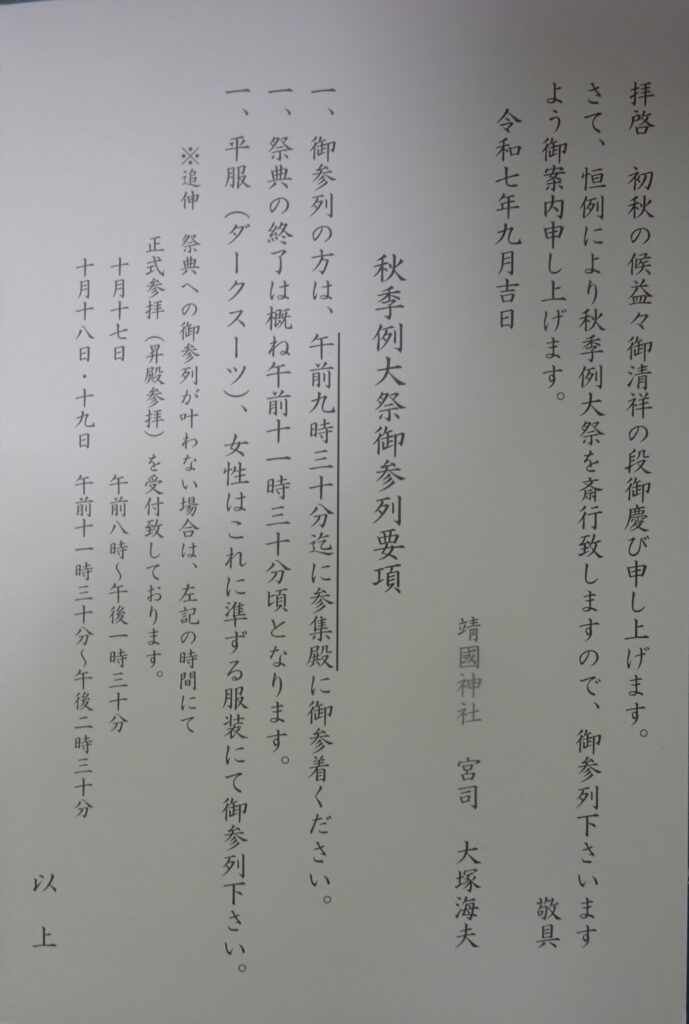 拝啓　初秋の候益々御清祥の段御慶び申し上げます。
さて、恒例により秋季例大祭を斎行致しますので、御参列下さいます
よう御案内申し上げます。
敬具
令和七年九月吉日
靖國神社　宮司　大塚海夫
秋季例大祭御参列要項
一、御参列の方は、午前九時三十分迄に参集殿に御参着ください。
一、祭典の終了は概ね午前十一時三十分頃となります。
一、平服（ダークスーツ）、女性はこれに準ずる服装にて御参列下さい。
※追伸　祭典への御参列が叶わない場合は、左記の時間にて
正式参拝（昇殿参拝）を受付致しております。
十月十七日　午前八時～午後一時三十分
十月十八日・十九日　午前十一時三十分～午後二時三十分
以上